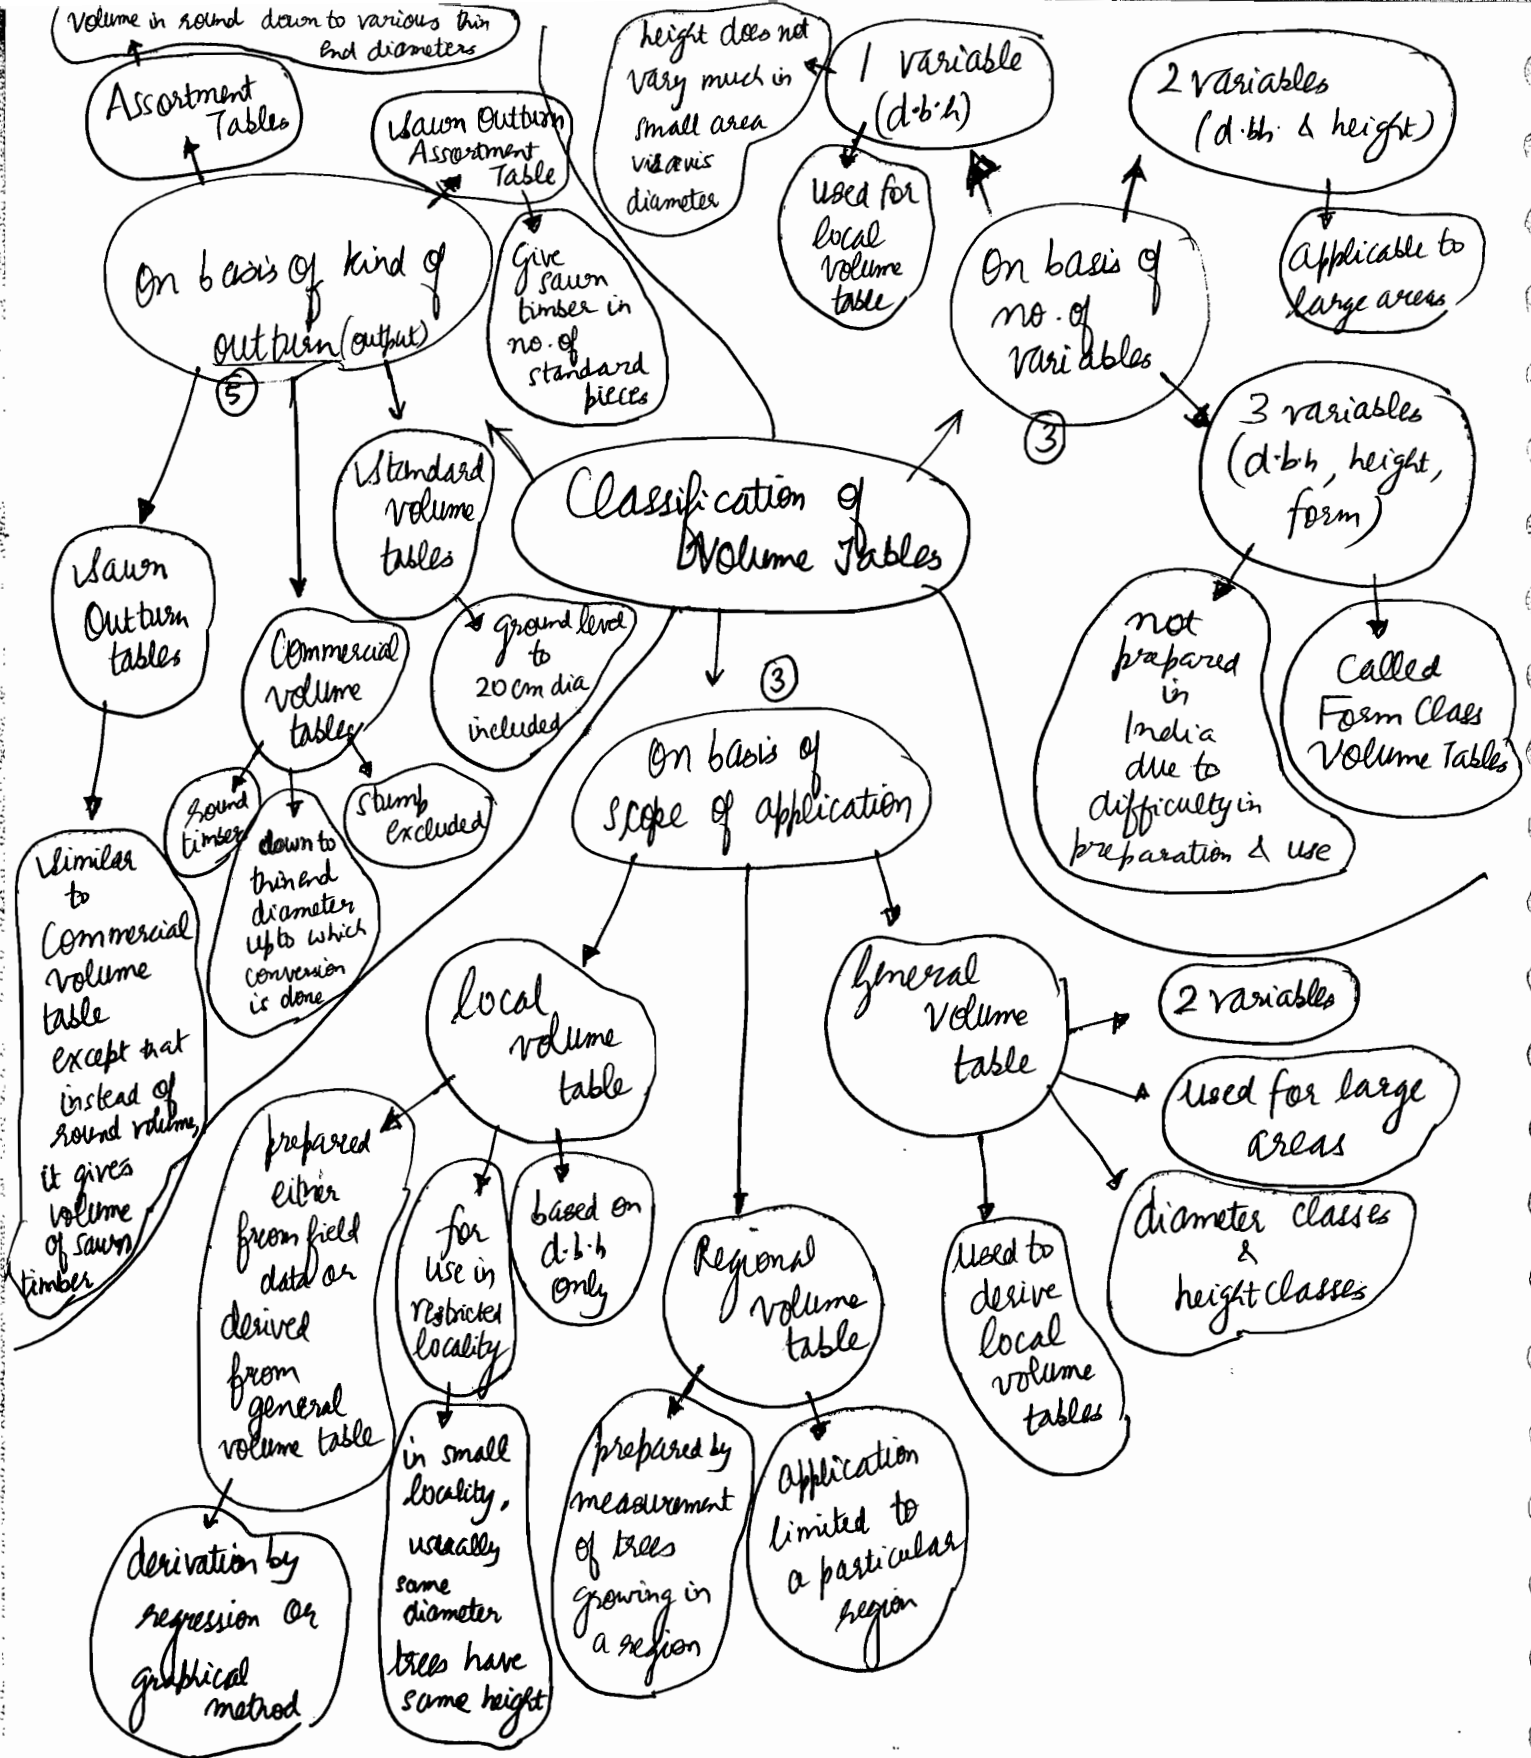 Volume in round down to various thin
end diameters
Assortment
Tables
Sawn Outturn
Assortment
Table
Give
sawn
timber in
no. of
standard
pieces
On basis of kind of
outturn (output)
5
Sawn
Outturn
tables
Similar
to
Commercial
volume
table
except that
instead of
round volume,
it gives
volume
of sawn
timber
Commercial
volume
tables
round
timber
down to
thin end
diameter
upto which
conversion
is done
stump
excluded
Standard
volume
tables
ground level
to
20 cm dia
included
Classification of
Volume Tables
1 variable
(d.b.h)
height does not
vary much in
small area
visavis
diameter
used for
local
volume
table
On basis of
no. of
variables
3
2 variables
(d.bh. & height)
applicable to
large areas
3 variables
(d.b.h, height,
form)
not
prepared
in
India
due to
difficulty in
preparation & use
Called
Form Class
Volume Tables
3
On basis of
scope of application
local
volume
table
prepared
either
from field
data or
derived
from
general
volume table
derivation by
regression or
graphical
method
for
use in
restricted
locality
in small
locality,
usually
same
diameter
trees have
same height
based on
d.b.h
only
Regional
volume
table
prepared by
measurement
of trees
growing in
a region
application
limited to
a particular
region
General
Volume
table
2 variables
used for large
areas
diameter classes
&
height classes
used to
derive
local
volume
tables